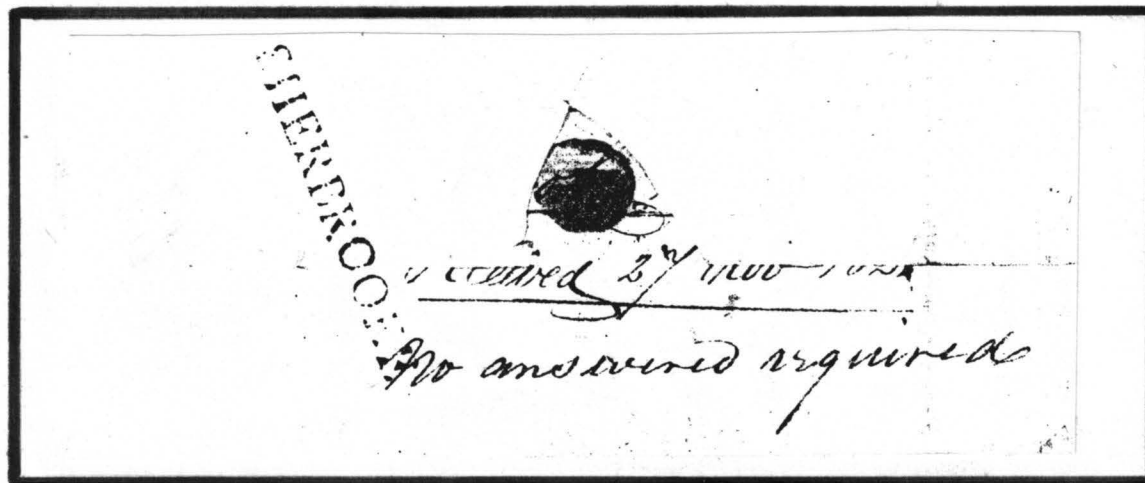 SHERBROOKE
received 27 nov
No answered required